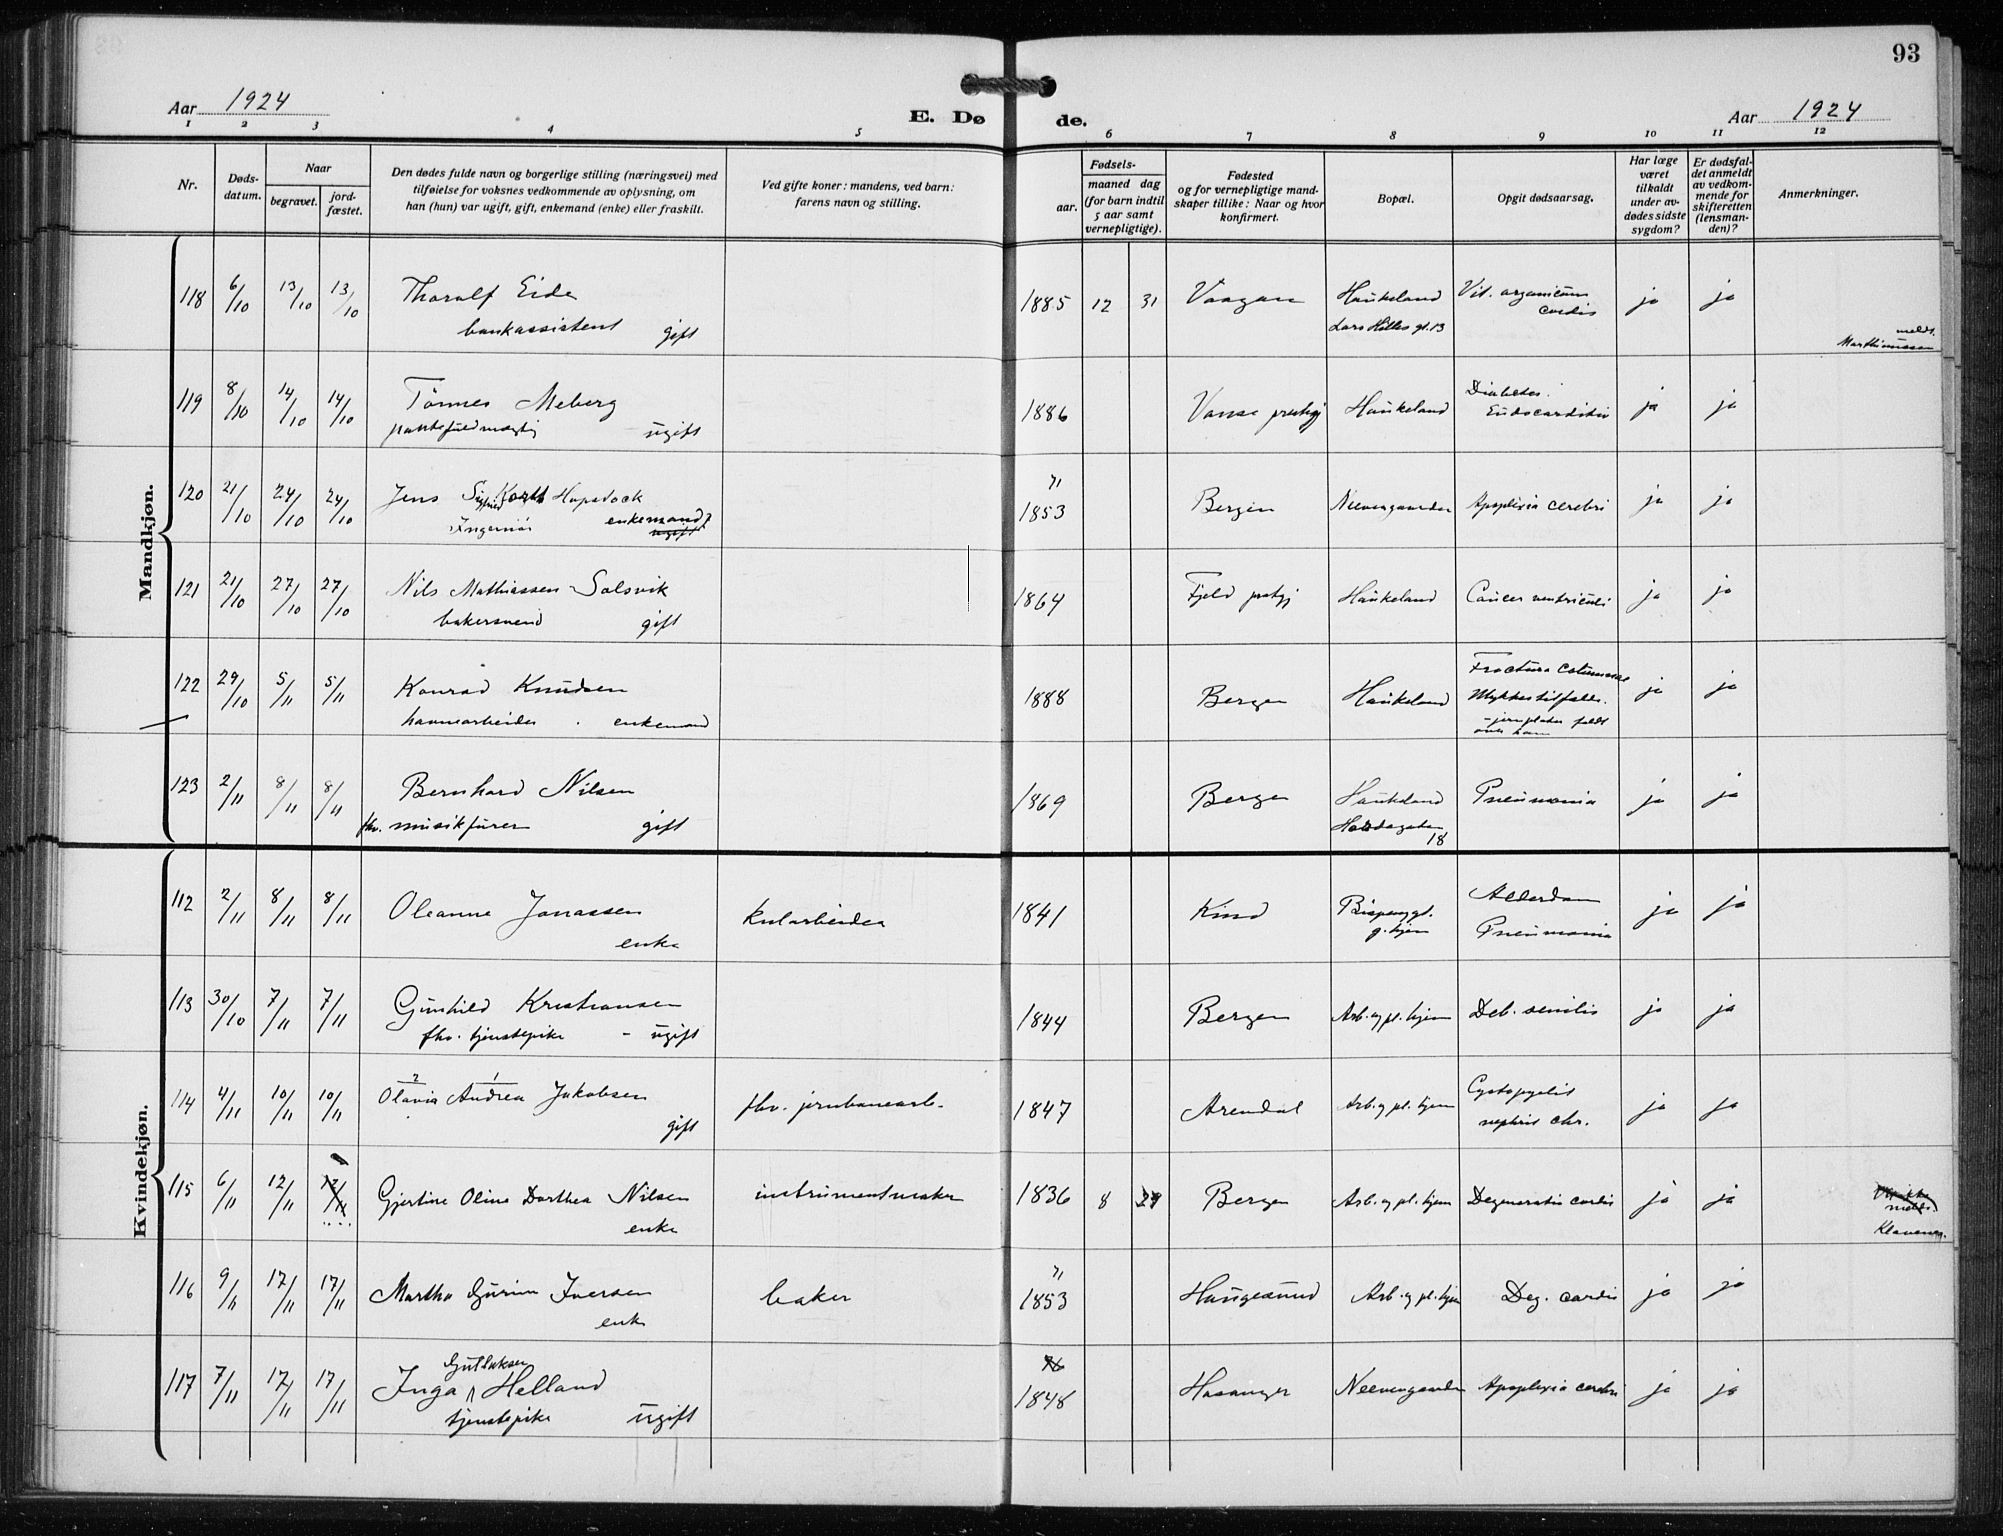 93
Aar 1924
E. Dø de.
Aar 1924
1 2 3 4 5 6 7 8 9 10 11 12
Nr.
Døds-datum.
Naar
begravet.
jord-fæstet.
Den dødes fulde navn og borgerlige stilling (næringsvei) med
tilføielse for voksnes vedkommende av oplysning, om
han (hun) var ugift, gift, enkemand (enke) eller fraskilt.
Ved gifte koner: mandens, ved barn:
farens navn og stilling.
Fødsels-
aar.
maaned dag
(for barn indtil
5 aar samt
vernepligtige).
Fødested
og for vernepligtige mand-
skaper tillike: Naar og hvor
konfirmert.
Bopæl.
Opgit dødsaarsag.
Har læge
været
tilkaldt
under av-
dødes sidste
sygdom?
Er dødsfal-
det anmeldt
av vedkom-
mende for
skifteretten
(lensman-
den)?
Anmerkninger.
Mandkjøn.
118 6/10 13/10 13/10 Thoralf Eide 1885 12 31 Vaagan Haukeland Vit. organicum ja ja
bankassistent gift Lars Hilles gt. 13 cordis
meldt.
119 8/10 14/10 14/10 Tönnes Meberg 1886 Vanse prestgj Haukeland Diabetes. ja ja
ugift Endocarditis
120 21/10 24/10 24/10 Jens Sigfried Hopstock 1853 Bergen Neevengaarden Apoplexia cerebri ja ja
Ingeniör enkemand?
ugift
121 21/10 27/10 27/10 Nils Mathiassen Solsvik 1864 Fjeld prstgj Haukeland Cancer ventriculi ja ja
bakersvend gift
122 29/10 5/11 5/11 Konrad Knudsen 1888 Bergen Haukeland Fractura columnae ja ja
havnearbeider. enkemand Ulykkestilfælde.
jernplater faldt
over ham
123 2/11 8/11 8/11 Bernhard Nilsen 1869 Bergen Haukeland Pneumonia ja ja
fhv. musikfurer gift 18
Kvindekjøn.
112 2/11 8/11 8/11 Oleanne Jonassen kularbeider 1841 Kind Bispengt. Alderdom ja ja
enke g. hjem Pneumonia
113 30/10 7/11 7/11 Gunhild Kristiansen 1844 Bergen Arb. og pl. hjem Deb. senilis ja ja
fhv. tjenstepike - ugift
114 4/11 10/11 10/11 Olavia Andrea Jakobsen fhv. jernbanearb. 1847 Arendal Arb. og pl. hjem Cystopyelit ja ja
2 1
gift nephrit chr.
115 6/11 12/11 12/11 Gjertine Oline Dorthea Nilsen instrumentmaker 1836 8 29 Bergen Arb. og pl. hjem Degeneratio cordis ja ja
enke
116 9/11 17/11 17/11 Martha Gurine Iversen baker 1853 Haugesund Arb. og pl. hjem Deg. cordis ja ja
enke
117 7/11 17/11 17/11 Inga Gutlaksen Helland 1848 Neevengaarden Apoplexia cerebri ja ja
tjenstepike ugift